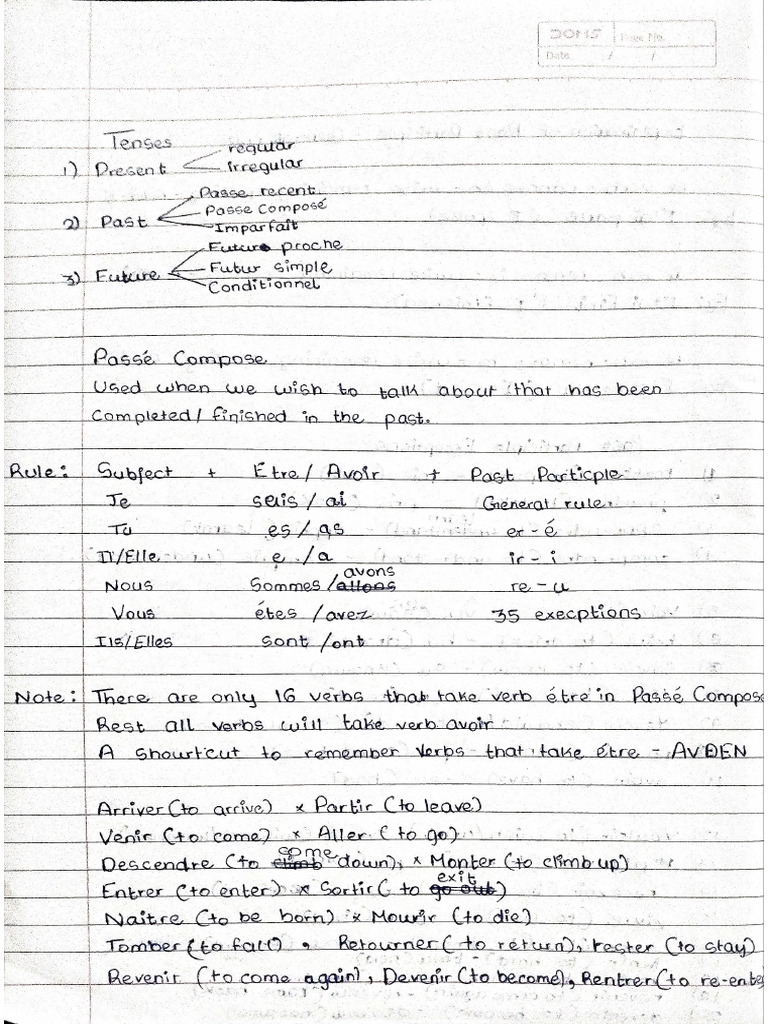 DOMS Page No.
Date / /
Tenses
1) Present regular
irregular
2) Past Passe recent
Passe Composé
Imparfait
3) Future Future proche
Futur simple
Conditionnel
Passé Compose
Used when we wish to talk about that has been
Completed/ finished in the past.
Rule: Subject + Être/ Avoir + Past Particple
Je suis / ai General rule
Tu es / as er - é
Il/Elle e / a ir - i
avons
Nous Sommes / allons re - u
Vous étes / avez 35 execptions
Ils/Elles sont / ont
Note: There are only 16 verbs that take verb étre in Passé Compose
Rest all verbs will take verb avoir
A shourtcut to remember verbs that take étre - AVDEN
Arriver (to arrive) x Partir (to leave)
Venir (to come) x Aller (to go)
some
Descendre (to climb down), x Monter (to climb up)
exit
Entrer (to enter) x Sortir ( to go out)
Naitre (to be born) x Mourir (to die)
Tomber (to fall) , Retourner ( to return), rester (to stay)
Revenir (to come again), Devenir (to become), Rentrer (to re-ente